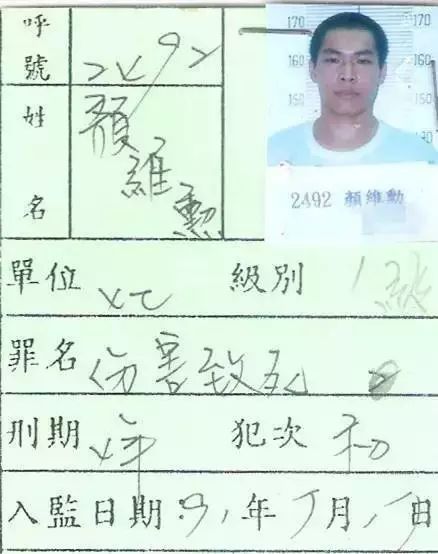 呼號 2492
姓名 顏維勳
170 170
160 160
150
2492 顏維勳
單位 級別
罪名 伤害致死
刑期 犯次 初
入監日期:91年 月 日